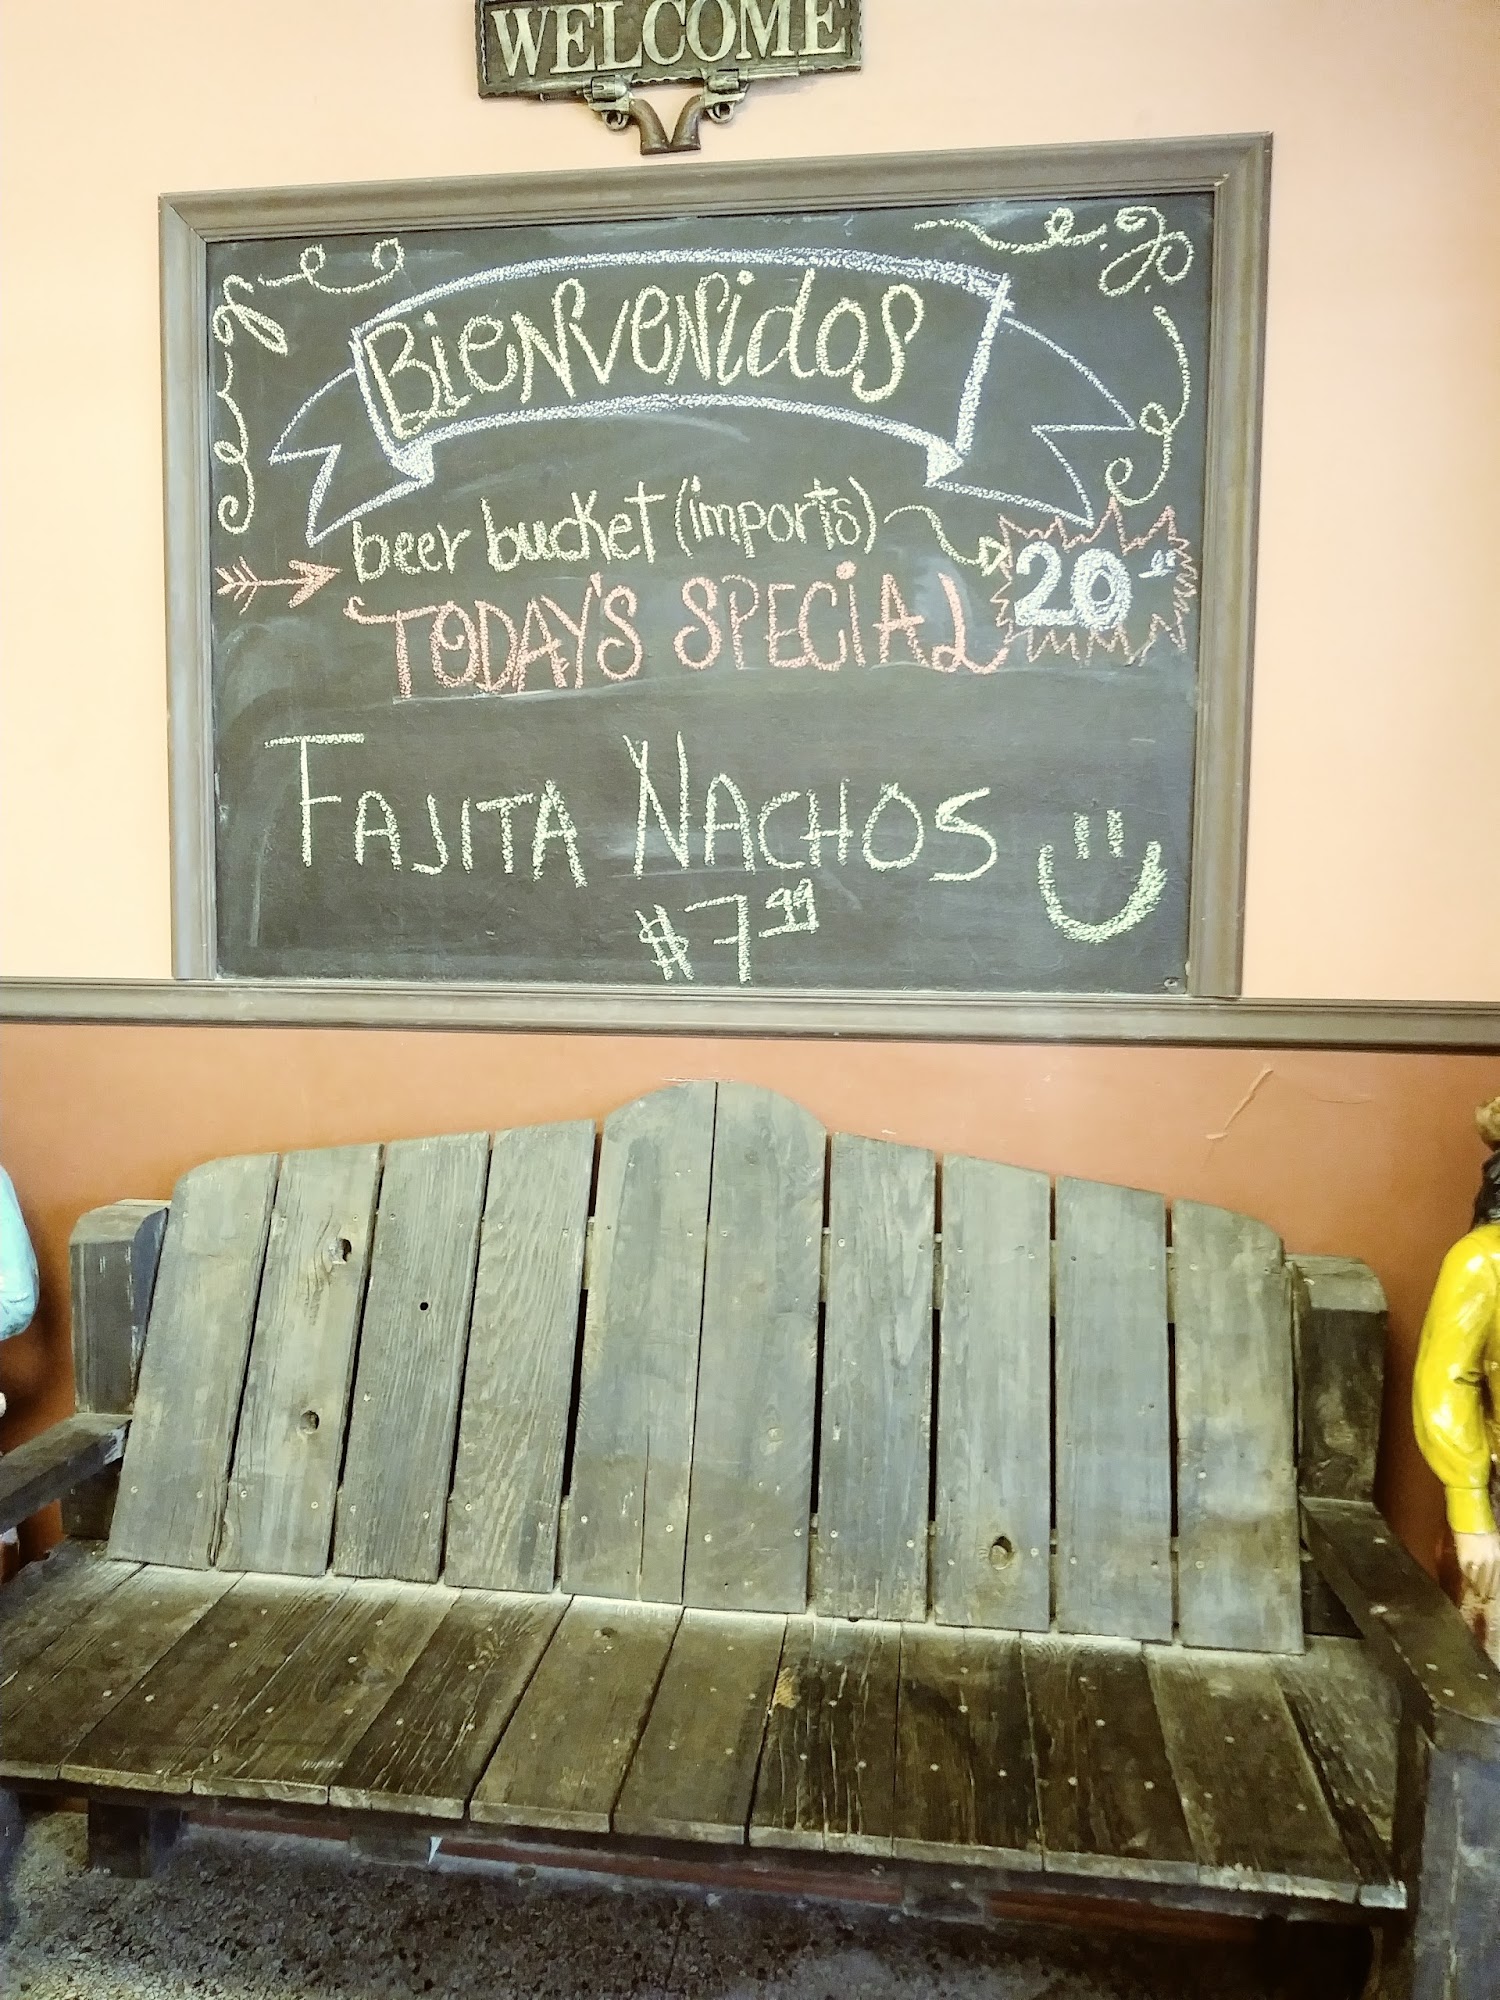 WELCOME
Bienvenidos
beer bucket (imports)
20
TODAY'S SPECiAL
FAJITA NACHOS
$7.99